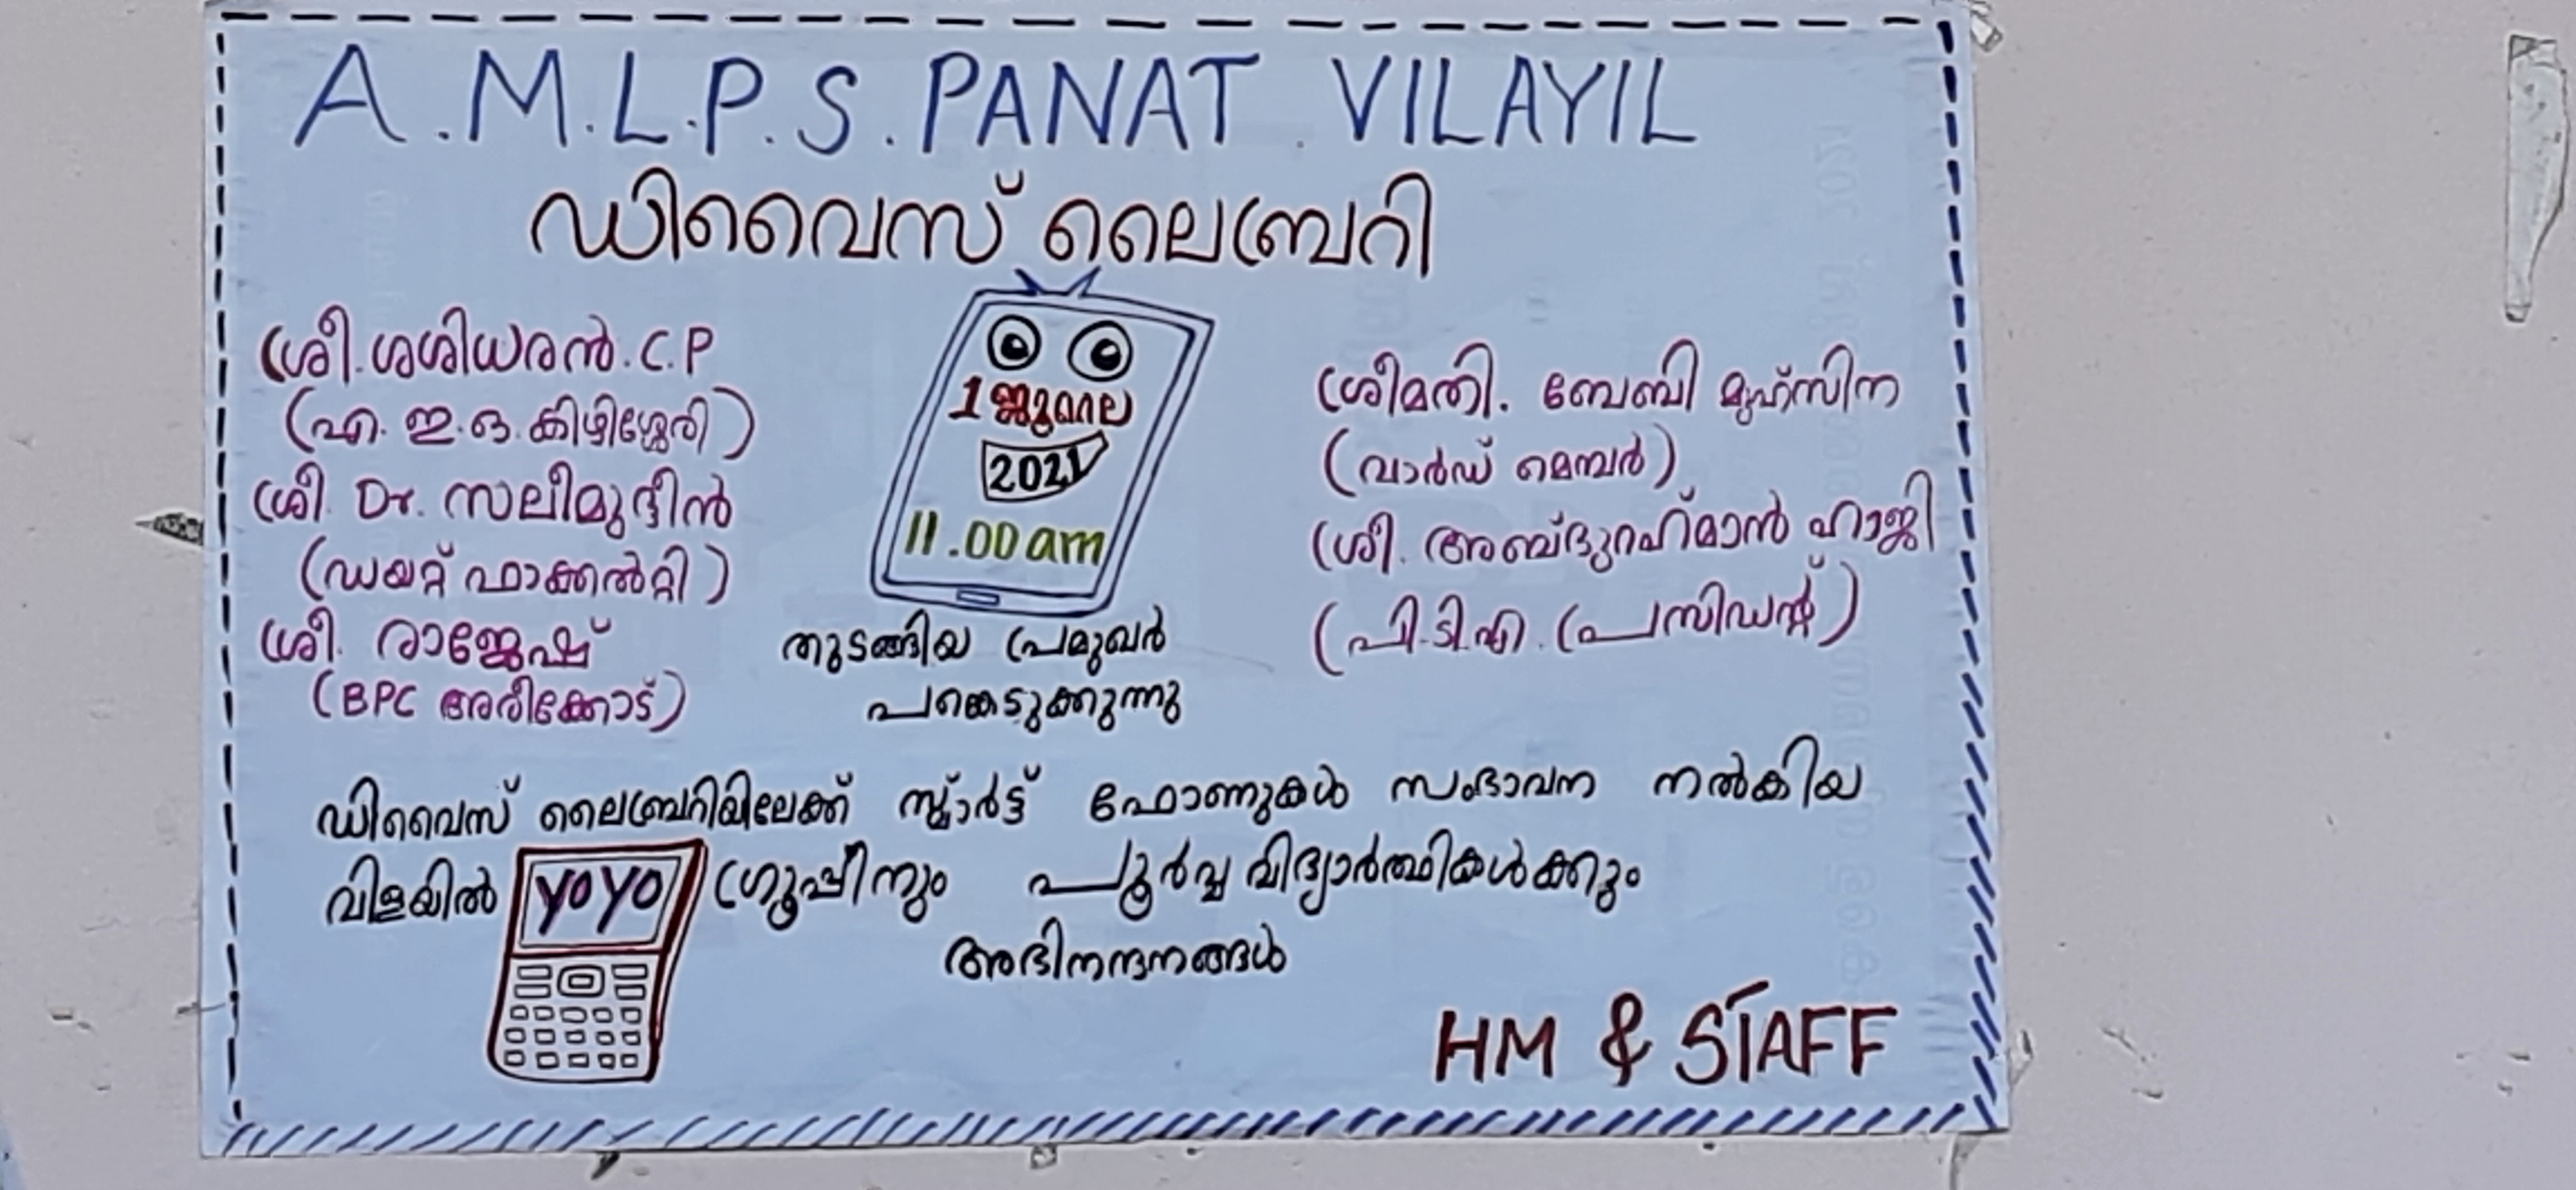 A.M.L.P.S. PANAT VILAYIL
ഡിവൈസ് ലൈബ്രറി
ശ്രീ. ശശിധരൻ. C.P
(എ. ഇ. ഒ. കിഴിശ്ശേരി)
ശ്രീ. Dr. സലീമുദ്ദീൻ
(ഡയറ്റ് ഫാക്കൽറ്റി)
ശ്രീ. രാജേഷ്
(BPC അരീക്കോട്)
1 ജൂലൈ
2021
11.00 am
തുടങ്ങിയ പ്രമുഖർ
പങ്കെടുക്കുന്നു
ശ്രീമതി. ബേബി മുഹ്സിന
(വാർഡ് മെമ്പർ)
ശ്രീ. അബ്ദുറഹ്മാൻ ഹാജി
(പി.ടി.എ. പ്രസിഡന്റ്)
ഡിവൈസ് ലൈബ്രറിയിലേക്ക് സ്മാർട്ട് ഫോണുകൾ സംഭാവന നൽകിയ
വിളയിൽ YOYO ഗ്രൂപ്പിനും പൂർവ്വ വിദ്യാർത്ഥികൾക്കും
അഭിനന്ദനങ്ങൾ
HM & STAFF